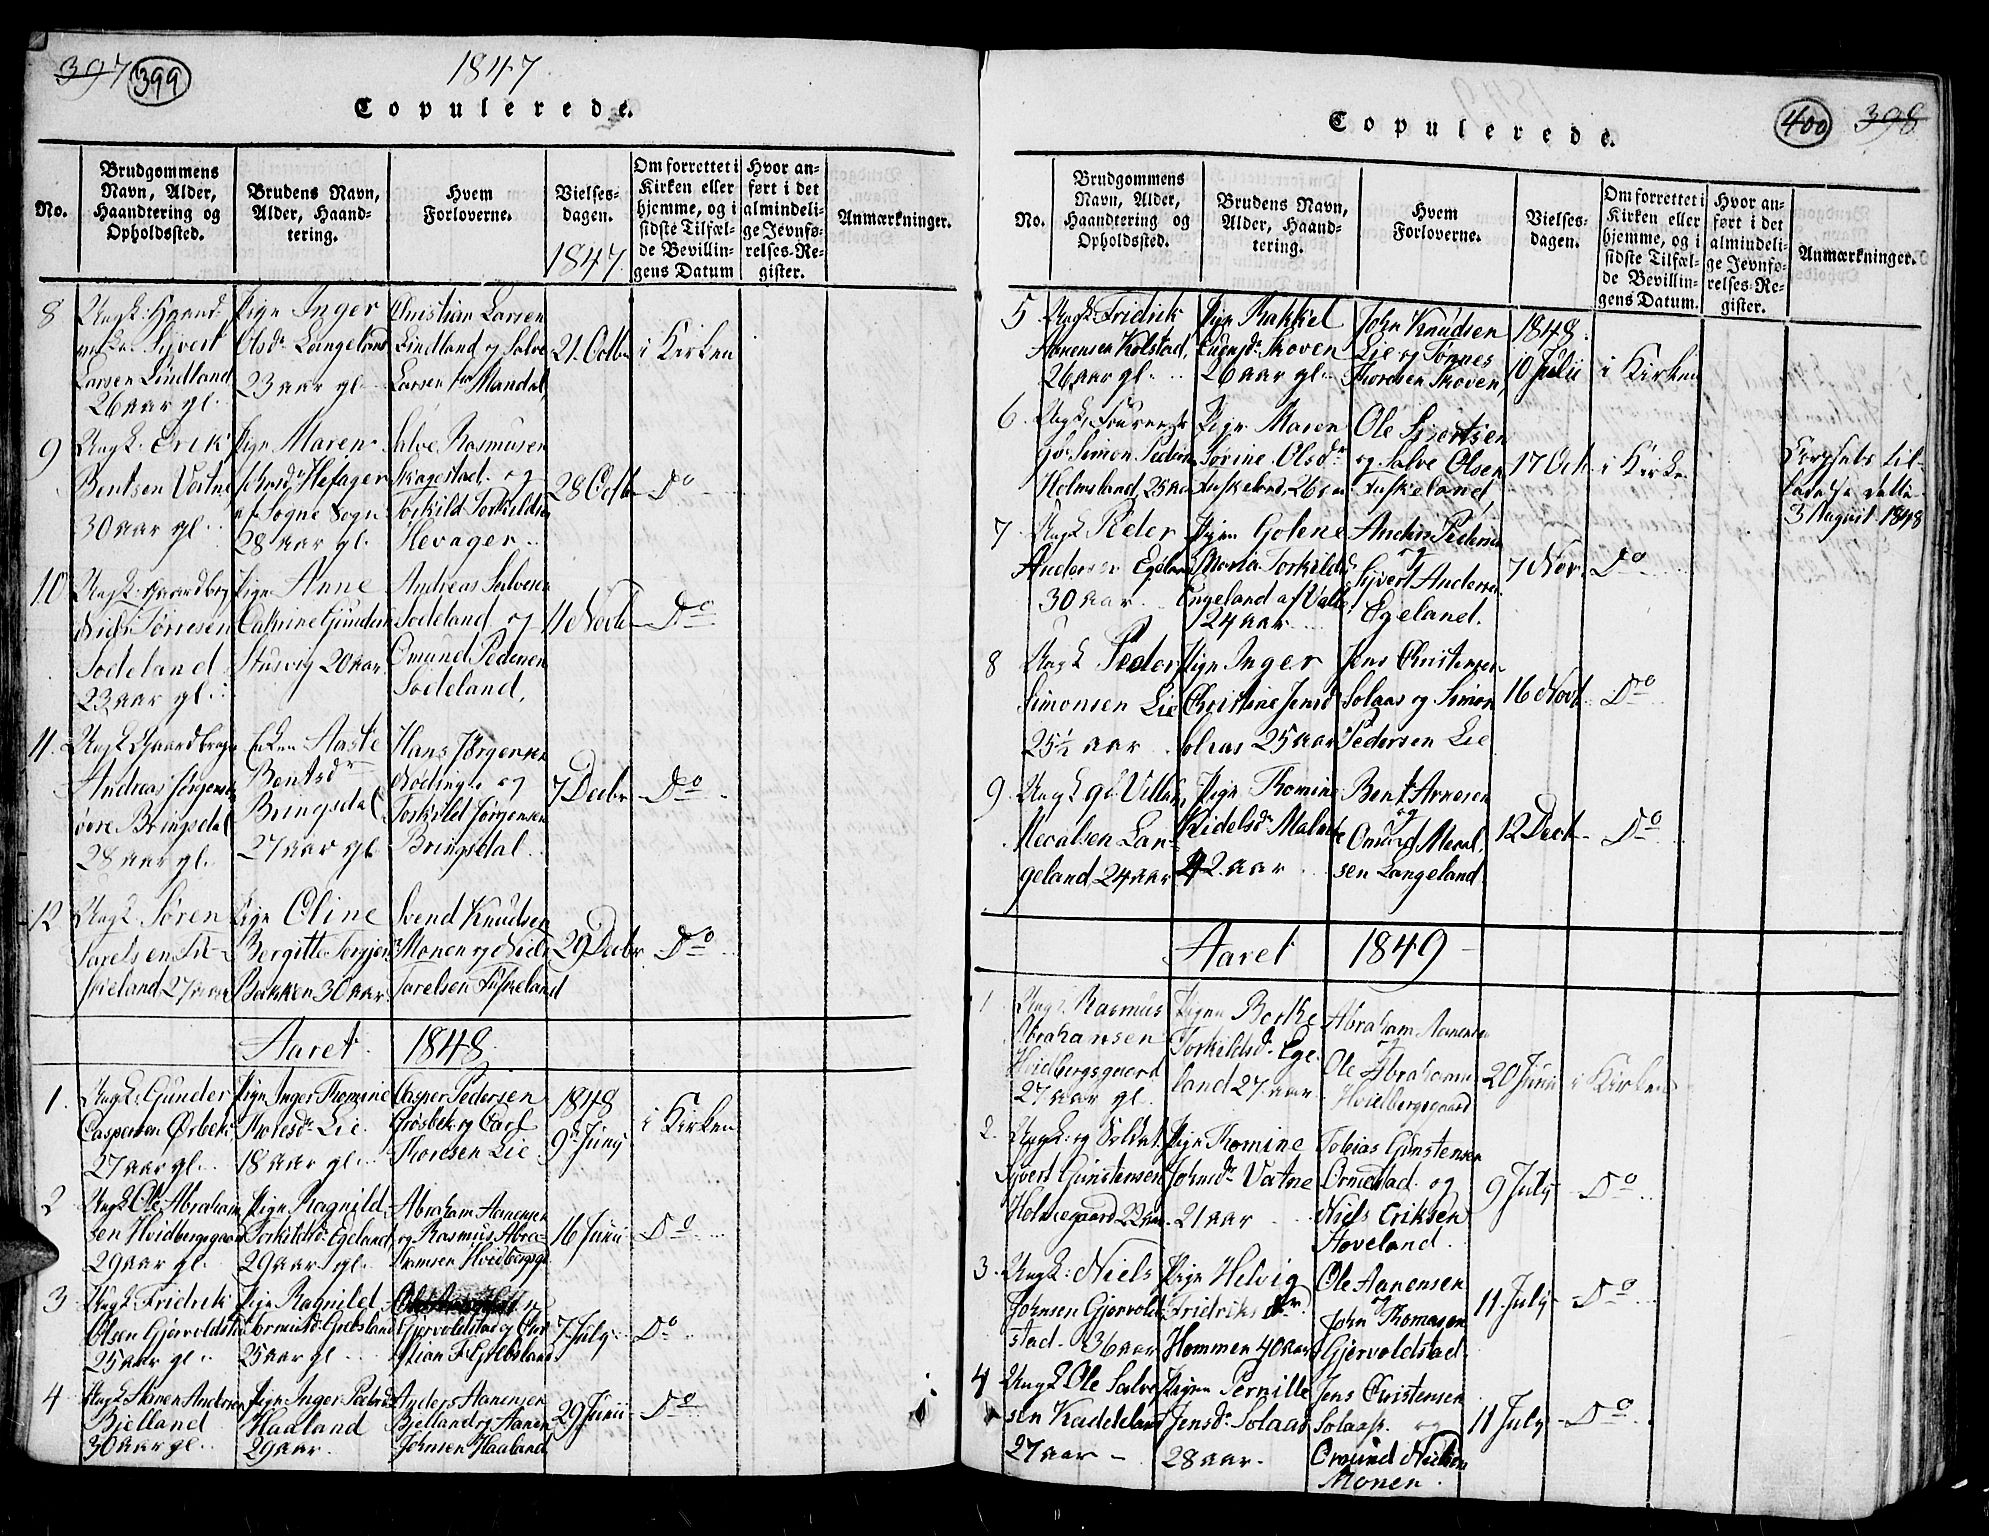 397 399
1847
Copulerede.
No.
Brudgommens
Navn, Alder,
Haandtering og
Opholdssted.
Brudens Navn,
Alder, Haand-
tering.
Hvem
Forloverne.
Vielses-
dagen.
1847
Om forrettet i
Kirken eller
hjemme, og i
sidste Tilfæl-
de Bevillin-
gens Datum
Hvor an-
ført i det
almindeli-
ge Jevnfø-
relses-Re-
gister.
Anmærkninger.
8
Ungk:
Sivert
Larsen Lindland
26 aar gl.
Pige Inger
Olsdr Langeland
23 aar gl.
Christian Larsen
Lindland og Salve
Larsen fra Mandal
21 Octbr
i Kirken
9
Ungk. Erik
Bentsen Vatne
30 aar gl.
Pige Maren
Hefager
af Sogne Sogn
28 aar gl.
Salve Rasmusen
Skagestad og
Torkild Torkildsen
Hevager
28 Octbr
Do
10
Ungk: Gaardbr
Tørresen
Sodeland
23 aar gl.
Pige Anne
Cathrine Gunders
Stusvig 20 aar
Andreas Salvesen
Sodeland og
Omund Pedersen
Sodeland,
11 Novbr
Do
11.
Ungk Gaardbruger
Andreas Jørgensen
øvre Bringsdal
28 aar gl.
Enken Aaste
Bentsdr
Bringsdal
27 aar gl
Hans Jørgensen
Rødinge og
Torkild Jørgensen
Bringsdal
7 Decbr
Do
12
Ungk Søren
Tarelsen Fu-
skeland 27 aar
Pige Oline
Bergitte Torgjers
Bakken 30 aar
Svend Knudsen
Monen og
Tarelsen Fuskeland
29 Decbr
Do
Aaret 1848
1.
Ungk: Gunder
Caspersen Ørbek
27 aar gl.
Pige Inger Thomine
Thoresdr Lie
18 aar gl.
Casper Pedersen
Grøsbek og Carl
Thoresen Lie
1848
9 Junij
i Kirken
2
Ungk Ole Abraham
sen Hvidbergsgaard
29 aar gl.
Pige Ragnild
Torkildsdr Egeland
29 aar gl.
Abraham Aanensen
og Rasmus Abra-
hamsen Hvidbergsg
16 Junii
Do
3
Ungk Fridrik
Olsen Gjervoldstad
25 aar gl.
Pige Ragnild
Gormundsdr Grebsland
25 aar gl
Gjervoldstad og Chri
stian F Grebsland
7 July
Do
4
Ungk Aanen Andersen
Bielland
30 aar gl.
Pige Inger Pedersdr
Haaland
29 aar.
Anders Aanensen
Bielland og Aanen
Johnsen Haaland
29 Junii
Do
400 398
Copulerede.
No.
Brudgommens
Navn, Alder,
Haandtering og
Opholdssted.
Brudens Navn,
Alder, Haand-
tering.
Hvem
Forloverne.
Vielses-
dagen.
Om forrettet i
Kirken eller
hjemme, og i
sidste Tilfæl-
de Bevillin-
gens Datum.
Hvor an-
ført i det
almindeli-
ge Jevnfø-
relses-Re-
gister.
Anmærkninger.
5
Ungk Fridrik
Aanensen Kolstad,
26 aar gl.
Pige Rakkel
Skoven
26 aar gl.
John Knudsen
Lie og Tønnes
Thoresen Skoven,
1848
10 Julii
i Kirken
6
Ungk,
Simon Pedersen
Holmsland, 25 aar
Pige Maren
Sorine Olsdr
Fuskeland, 26 aar
Ole Sivertsen
og Salve Olsen
Fuskeland,
17 Oct
i Kirke
til-
ladelse
3 August 1848
7
Ungk Peder
Andersen Egeland
30 aar
Pigen Golene
Maria Torkildsd
Engeland af Valle
24 aar
Anders Pedersen
og
Sivert Andersen
Egeland.
7 Nov.
Do
8
Ungk Peder
Simonsen Lie
25½ aar
Pige Inger
Christine Jensd
Solaas 25 aar
Jens Christensen
Solaas og Simon
Pedersen Lie
16 Novb
Do
9
Ungk gl Villum
Meralsen Lan-
geland 24 aar
Pige Thomine
Kidelsdr Malmhe
42 aar
Bent Arnesen
og
Omund Meral
sen Langeland
12 Decb
Do
Aaret 1849
1
Ungk Rasmus
Abrahamsen
Hvidbergsgaard
27 aar gl.
Pigen Berthe
Torkildsd. Ege-
land 27 aar
Abraham Aanensen
og
Ole Abrahamsen
Hvidbergsgaard
20 Junii
i Kirken
2.
Ungk. og Soldat
Sivert Gunstensen
Holmegaard 22 aar
Pige Thomine
Johnsdr Vatne
21 aar
Tobias Gunstensen
Ormestad og
Niels Eriksen
Aaveland.
9 July
Do
3.
Ungk: Niels
Johnsen Gjervold
stad 36 aar
Pige Helvig
Fridriks dr.
Hommen 40 aar
Ole Aanensen
og
John Thomasen
Gjervoldstad.
11 July
Do
4
Ungk Ole Salve
sen Kaddeland
27 aar
Pigen Pernille
Jensdr Solaas
28 aar
Jens Christensen
Solaas. og
Omund Nielsen
Monen.
11 July
Do